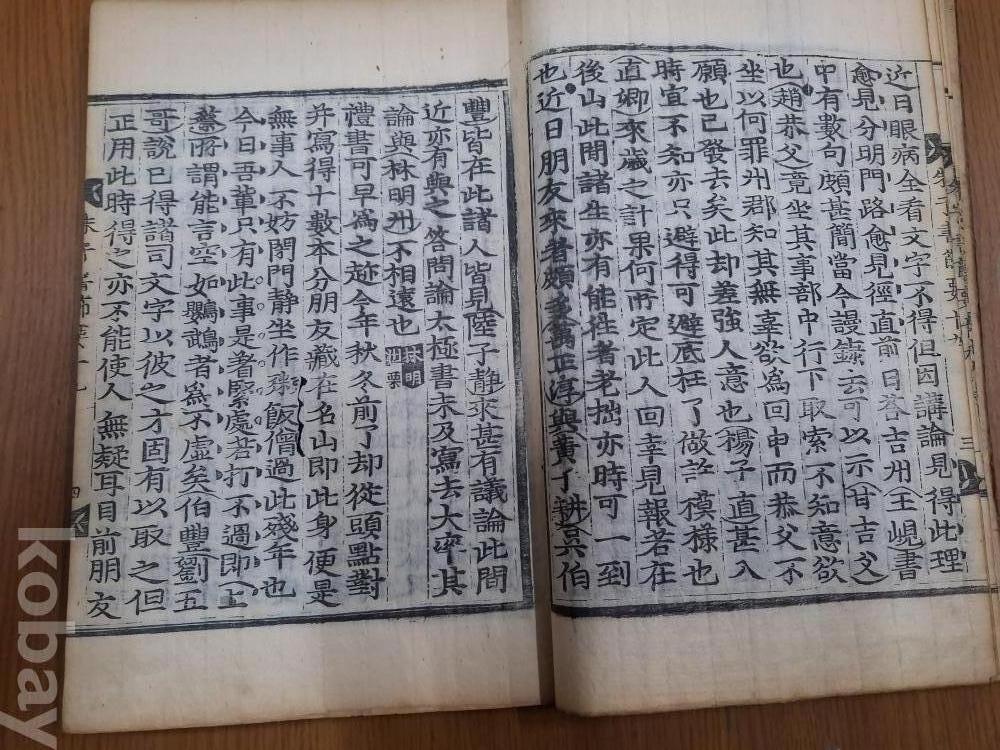 近日眼病全看文字不得但因講論見得此理
愈見分明門路愈見徑直前日答吉州王峴書
中有數句頗甚簡當今謾錄去可以示甘吉父
也趙恭父竟坐其事部中行下取索不知意欲
坐以何罪州郡知其無辜欲爲回申而恭父不
願也已發去矣此却差強人意也楊子直甚入
時宜不知亦只避得可避底枉了做許模樣也
直卿來歲之計果何所定此人回幸見報若在
後山此間諸生亦有能往者老拙亦時可一到
也近日朋友來者頗多萬正淳與黃子耕吳伯
豐皆在此諸人皆見陸子靜來甚有議論此間
近亦有與之答問論太極書未及寫去大率其
論與林明州不相遠也
林明
州栗
禮書可早爲之趁今年秋冬前了却從頭點對
幷寫得十數本分朋友藏在名山即此身便是
無事人不妨閉門靜坐作粥飯僧過此殘年也
今日吾輩只有此事是著緊處若打不過即上
蔡所謂能言空如鸚鵡者爲不虛矣伯豐劉五
哥說已得諸司文字以彼之才固有以取之但
正用此時得之亦不能使人無疑耳目前朋友
三
四
kobay